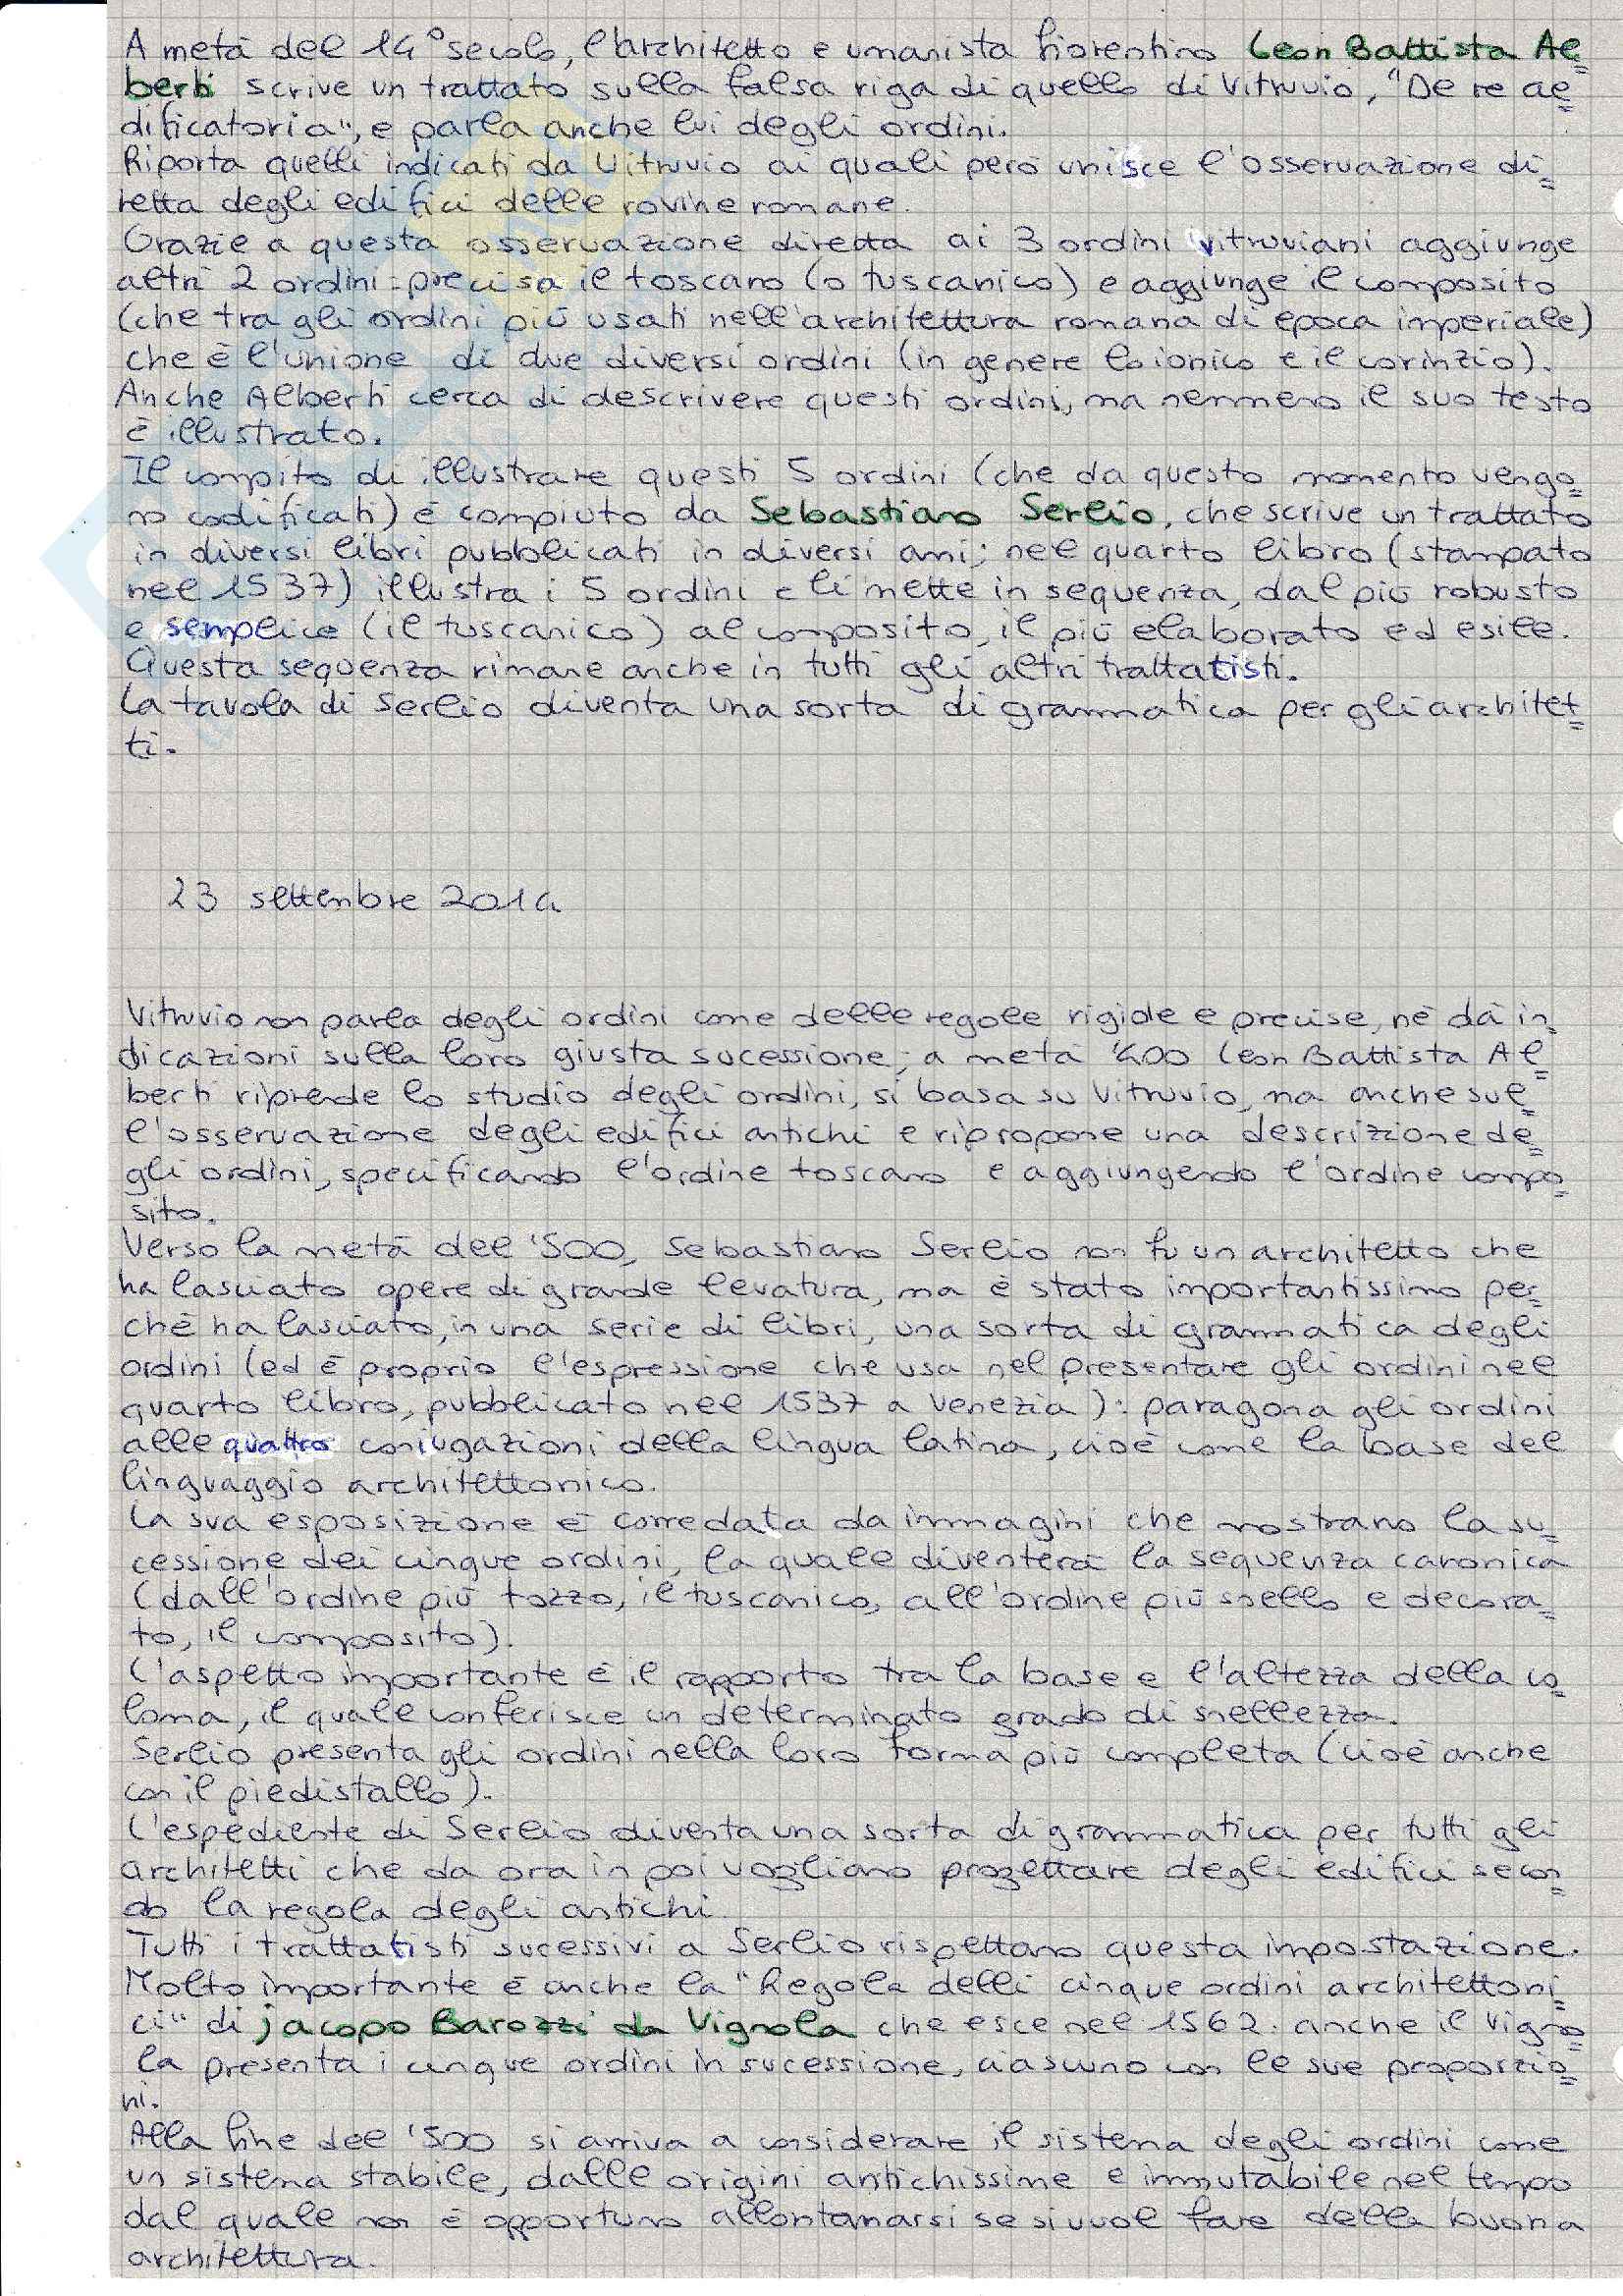 A metà del 14° secolo, l'architetto e umanista fiorentino Leon Battista Al=
berti scrive un trattato sulla falsa riga di quello di Vitruvio, "De re ae=
dificatoria", e parla anche lui degli ordini.
Riporta quelli indicati da Vitruvio ai quali però unisce l'osservazione di=
retta degli edifici delle rovine romane.
Grazie a questa osservazione diretta ai 3 ordini vitruviani aggiunge
altri 2 ordini: precisa il toscano (o tuscanico) e aggiunge il composito
(che tra gli ordini più usati nell'architettura romana di epoca imperiale)
che è l'unione di due diversi ordini (in genere lo ionico e il corinzio).
Anche Alberti cerca di descrivere questi ordini, ma nemmeno il suo testo
è illustrato.
Il compito di illustrare questi 5 ordini (che da questo momento vengo=
no codificati) è compiuto da Sebastiano Serlio, che scrive un trattato
in diversi libri pubblicati in diversi anni; nel quarto libro (stampato
nel 1537) illustra i 5 ordini e li mette in sequenza, dal più robusto
e semplice (il tuscanico) al composito, il più elaborato ed esile.
Questa sequenza rimane anche in tutti gli altri trattatisti.
La tavola di Serlio diventa una sorta di grammatica per gli architet=
ti.
23 settembre 2014
Vitruvio non parla degli ordini come delle regole rigide e precise, nè dà in=
dicazioni sulla loro giusta sucessione; a metà '400 Leon Battista Al=
berti riprende lo studio degli ordini, si basa su Vitruvio, ma anche sul=
l'osservazione degli edifici antichi e ripropone una descrizione de=
gli ordini, specificando l'ordine toscano e aggiungendo l'ordine compo=
sito.
Verso la metà del '500, Sebastiano Serlio non fu un architetto che
ha lasciato opere di grande levatura, ma è stato importantissimo per=
chè ha lasciato, in una serie di libri, una sorta di grammatica degli
ordini (ed è proprio l'espressione che usa nel presentare gli ordini nel
quarto libro, pubblicato nel 1537 a Venezia): paragona gli ordini
alle quattro coniugazioni della lingua latina, cioè come la base del
linguaggio architettonico.
La sua esposizione è corredata da immagini che mostrano la su=
cessione dei cinque ordini, la quale diventerà la sequenza canonica
(dall'ordine più tozzo, il tuscanico, all'ordine più snello e decora=
to, il composito).
L'aspetto importante è il rapporto tra la base e l'altezza della co=
lonna, il quale conferisce un determinato grado di snellezza.
Serlio presenta gli ordini nella loro forma più completa (cioè anche
con il piedistallo).
L'espediente di Serlio diventa una sorta di grammatica per tutti gli
architetti che da ora in poi vogliano progettare degli edifici secon=
do la regola degli antichi.
Tutti i trattatisti sucessivi a Serlio rispettano questa impostazione.
Molto importante è anche la "Regola delli cinque ordini architettoni=
ci" di Jacopo Barozzi da Vignola che esce nel 1562: anche il Vigno=
la presenta i cinque ordini in sucessione, ciascuno con le sue proporzio=
ni.
Alla fine del '500 si arriva a considerare il sistema degli ordini come
un sistema stabile, dalle origini antichissime e immutabile nel tempo
dal quale non è opportuno allontanarsi se si vuol fare della buona
architettura.